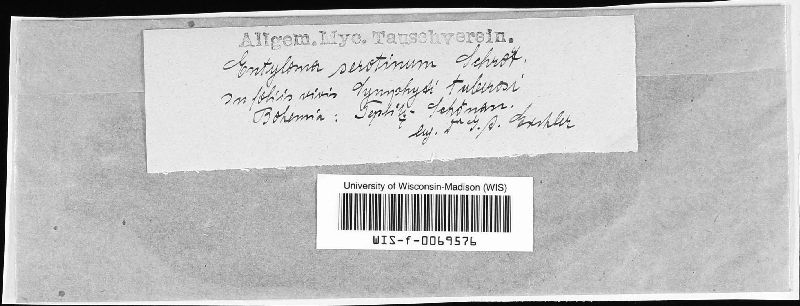 Allgem. Myc. Tauschverein.
Entyloma serotinum Schröt.
in foliis vivis Symphyti tuberosi
Bohemia: Teplitz - Schönau.
leg. Dr
University of Wisconsin-Madison (WIS)
WIS-f-0069576